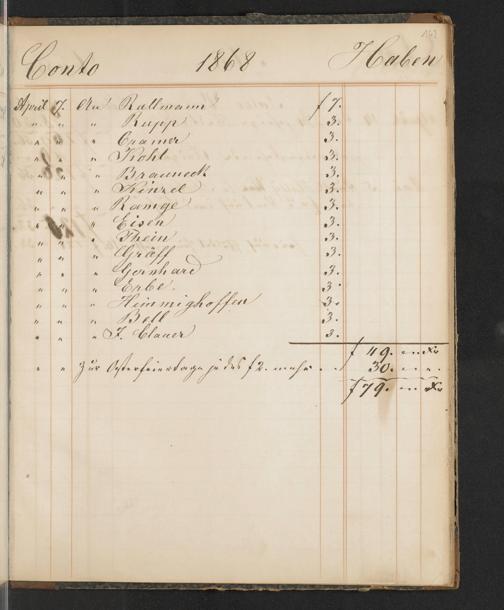 Conto 1868 Haben
April 7. An Rallmann f 7.
" " " " Rupp 3.
" " " Cramer 3.
" " " Kohl 3.
" " " Brauneck 3.
" " " Künzel 3.
" " " Ramge 3.
" " " Eisen 3.
" " " Thein 3.
" " " Gräff 3.
" " " Gernhard 3.
" " " Erbe. 3.
" " " Heimighoffen 3.
" " " Bell 3.
" " " J. Clauer 3.
f 49. " " Xr
" " Zur Osterfeiertage jedes f 2. mehr. . . 30. " " .
f 79. " " Xr